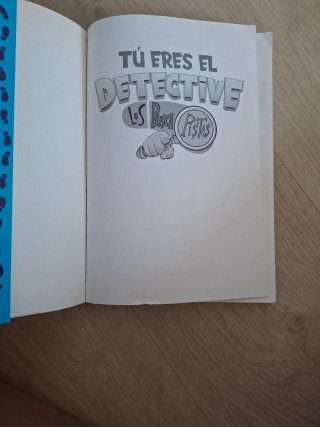 TÚ ERES EL
DETECTIVE
LOS BUSCA PISTAS